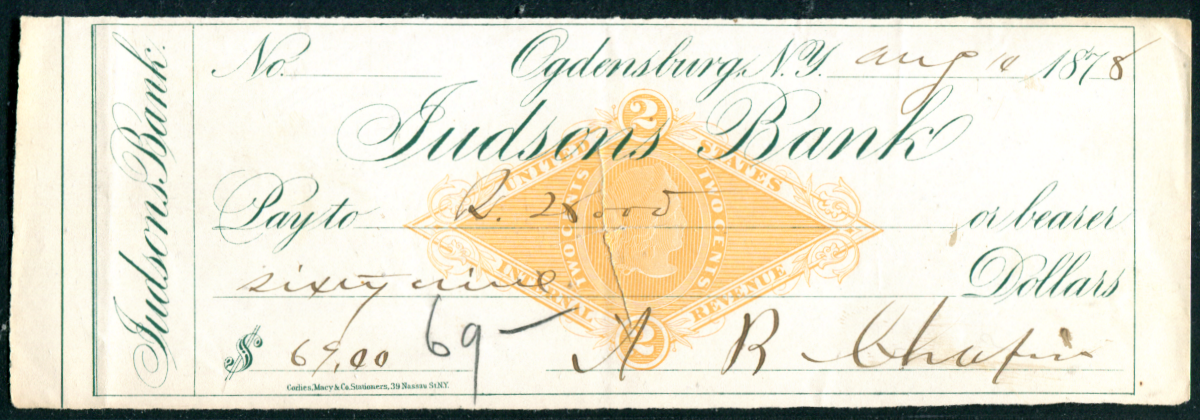 Judsons Bank.
No. Ogdensburg, N.Y. aug 10 1878
2
Judsons Bank
UNITED STATES
TWO CENTS TWO CENTS
Pay to R. Wood or bearer
sixty nine Dollars
INTERNAL REVENUE
2
$ 69.00 69- A R Chapin
Corlies, Macy & Co. Stationers, 39 Nassau St. N.Y.